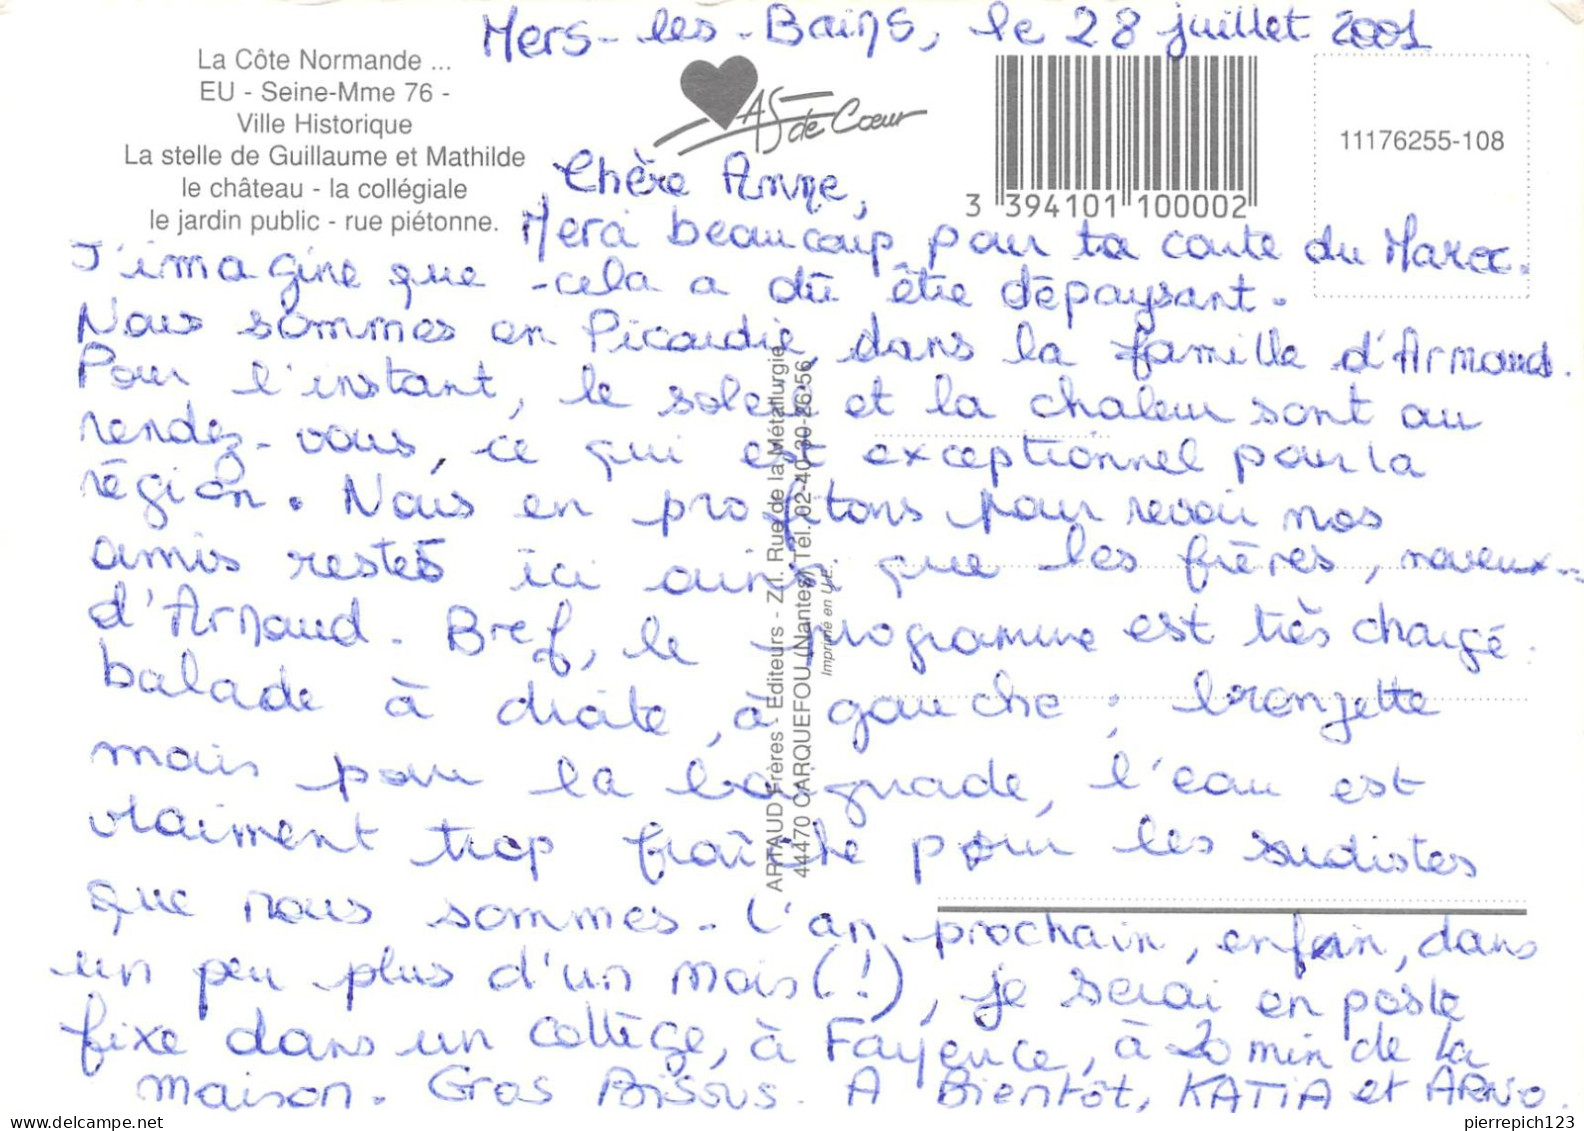 Mers-les-Bains, le 28 juillet 2001
La Côte Normande ...
EU - Seine-Mme 76 -
Ville Historique
La stelle de Guillaume et Mathilde
le château - la collégiale
le jardin public - rue piétonne.
AS de Cœur
3 394101 100002
11176255-108
Chère Anne,
Merci beaucoup pour ta carte du Maroc.
J'imagine que cela a dû être dépaysant.
Nous sommes en Picardie, dans la famille d'Arnaud.
Pour l'instant, le soleil et la chaleur sont au
rendez-vous, ce qui est exceptionnel pour la
région. Nous en profitons pour revoir nos
amis restés ici ainsi que les frères, neveux...
d'Arnaud. Bref, le programme est très chargé :
balade à droite, à gauche ; bronzette
mais pour la baignade, l'eau est
vraiment trop fraîche pour les sudistes
que nous sommes. L'an prochain, enfin, dans
un peu plus d'un mois (!), je serai en poste
fixe dans un collège, à Fayence, à 20 min de la
maison. Gros Bisous. A Bientôt, KATIA et ARNO.
ARTAUD Frères - Editeurs - Z.I. Rue de la Métallurgie
44470 CARQUEFOU (Nantes) Tél. 02-40-30-26-56
Imprimé en U.E.
delcampe.net
pierrepich123